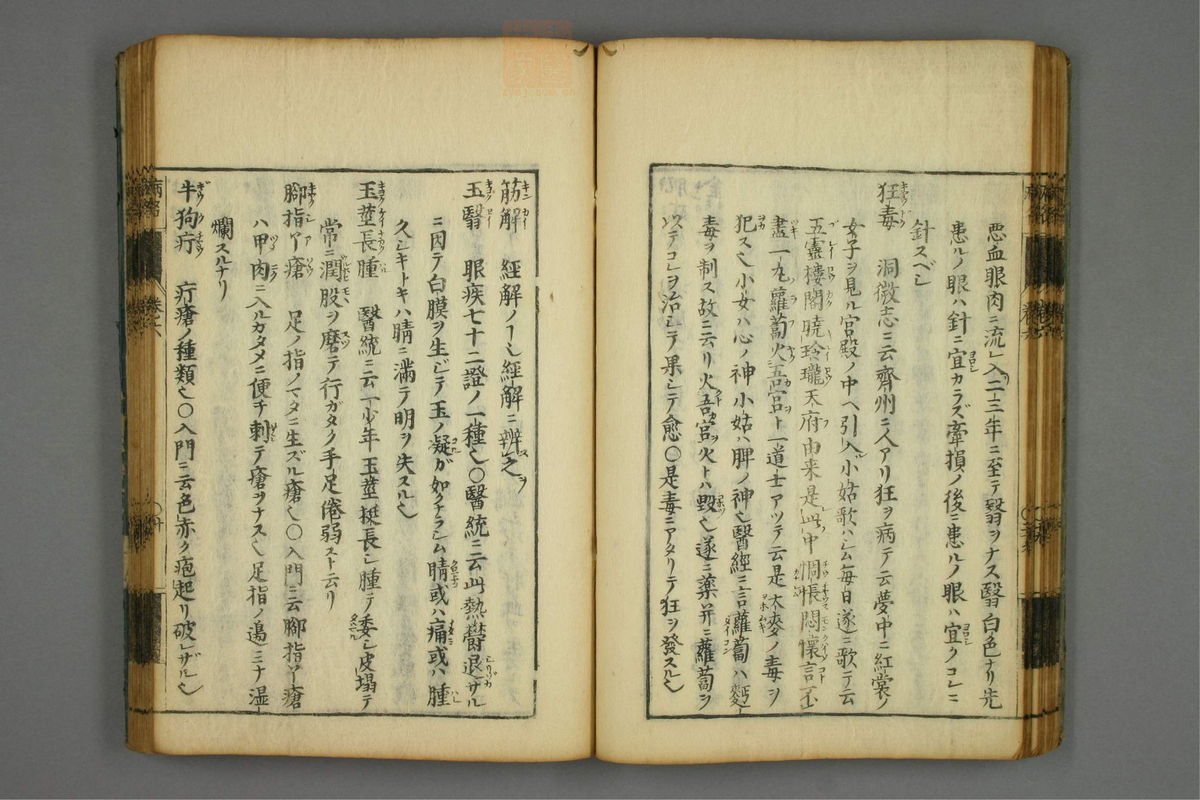 悪血眼肉ニ流レ入二三年ニ至テ翳ヲナス翳白色ナリ先
患ルノ眼ハ針ニ宜カラズ牽損ノ後ニ患ルノ眼ハ宜クコレニ
針スベシ
狂毒 洞微志ニ云齊州ニ人アリ狂ヲ病テ云夢中ニ紅裳ノ
女子ヲ見ル宮殿ノ中ヘ引入小姑歌ハシム毎日遂ニ歌テ云
五靈樓閣暁玲瓏天府由来是此中惆悵悶懐言不
盡一丸蘿蔔火吾宮ト一道士アツテ云是大麥ノ毒ヲ
犯ス也小女ハ心ノ神小姑ハ脾ノ神也醫經ニ言蘿蔔ハ麪
毒ヲ制ス故ニ云リ火吾宮火トハ毀也遂ニ薬并ニ蘿蔔ヲ
以テコレヲ治シテ果シテ愈〇是毒ニアタリテ狂ヲ發スル也
筋解 經解ノ也經解ニ辨之
玉翳 眼疾七十二證ノ一種也〇醫統ニ云此熱欝退ザル
ニ因テ白膜ヲ生ジテ玉ノ凝ガ如クナラシム睛或ハ痛或ハ腫
久シキトキハ睛ニ滿テ明ヲ失スル也
玉莖長腫 醫統ニ云一少年玉莖挺長シ腫テ委シ皮塌テ
常ニ潤股ヲ磨テ行ガタク手足倦弱スト云リ
腳指丫瘡 足ノ指ノマタニ生ズル瘡也〇入門ニ云腳指丫瘡
ハ甲肉ニ入ルカタメニ便チ刺テ瘡ヲナス也足指ノ邉ミナ湿
爛スルナリ
牛狗疔 疔瘡ノ種類也〇入門ニ云色赤ク疱起リ破レザル也